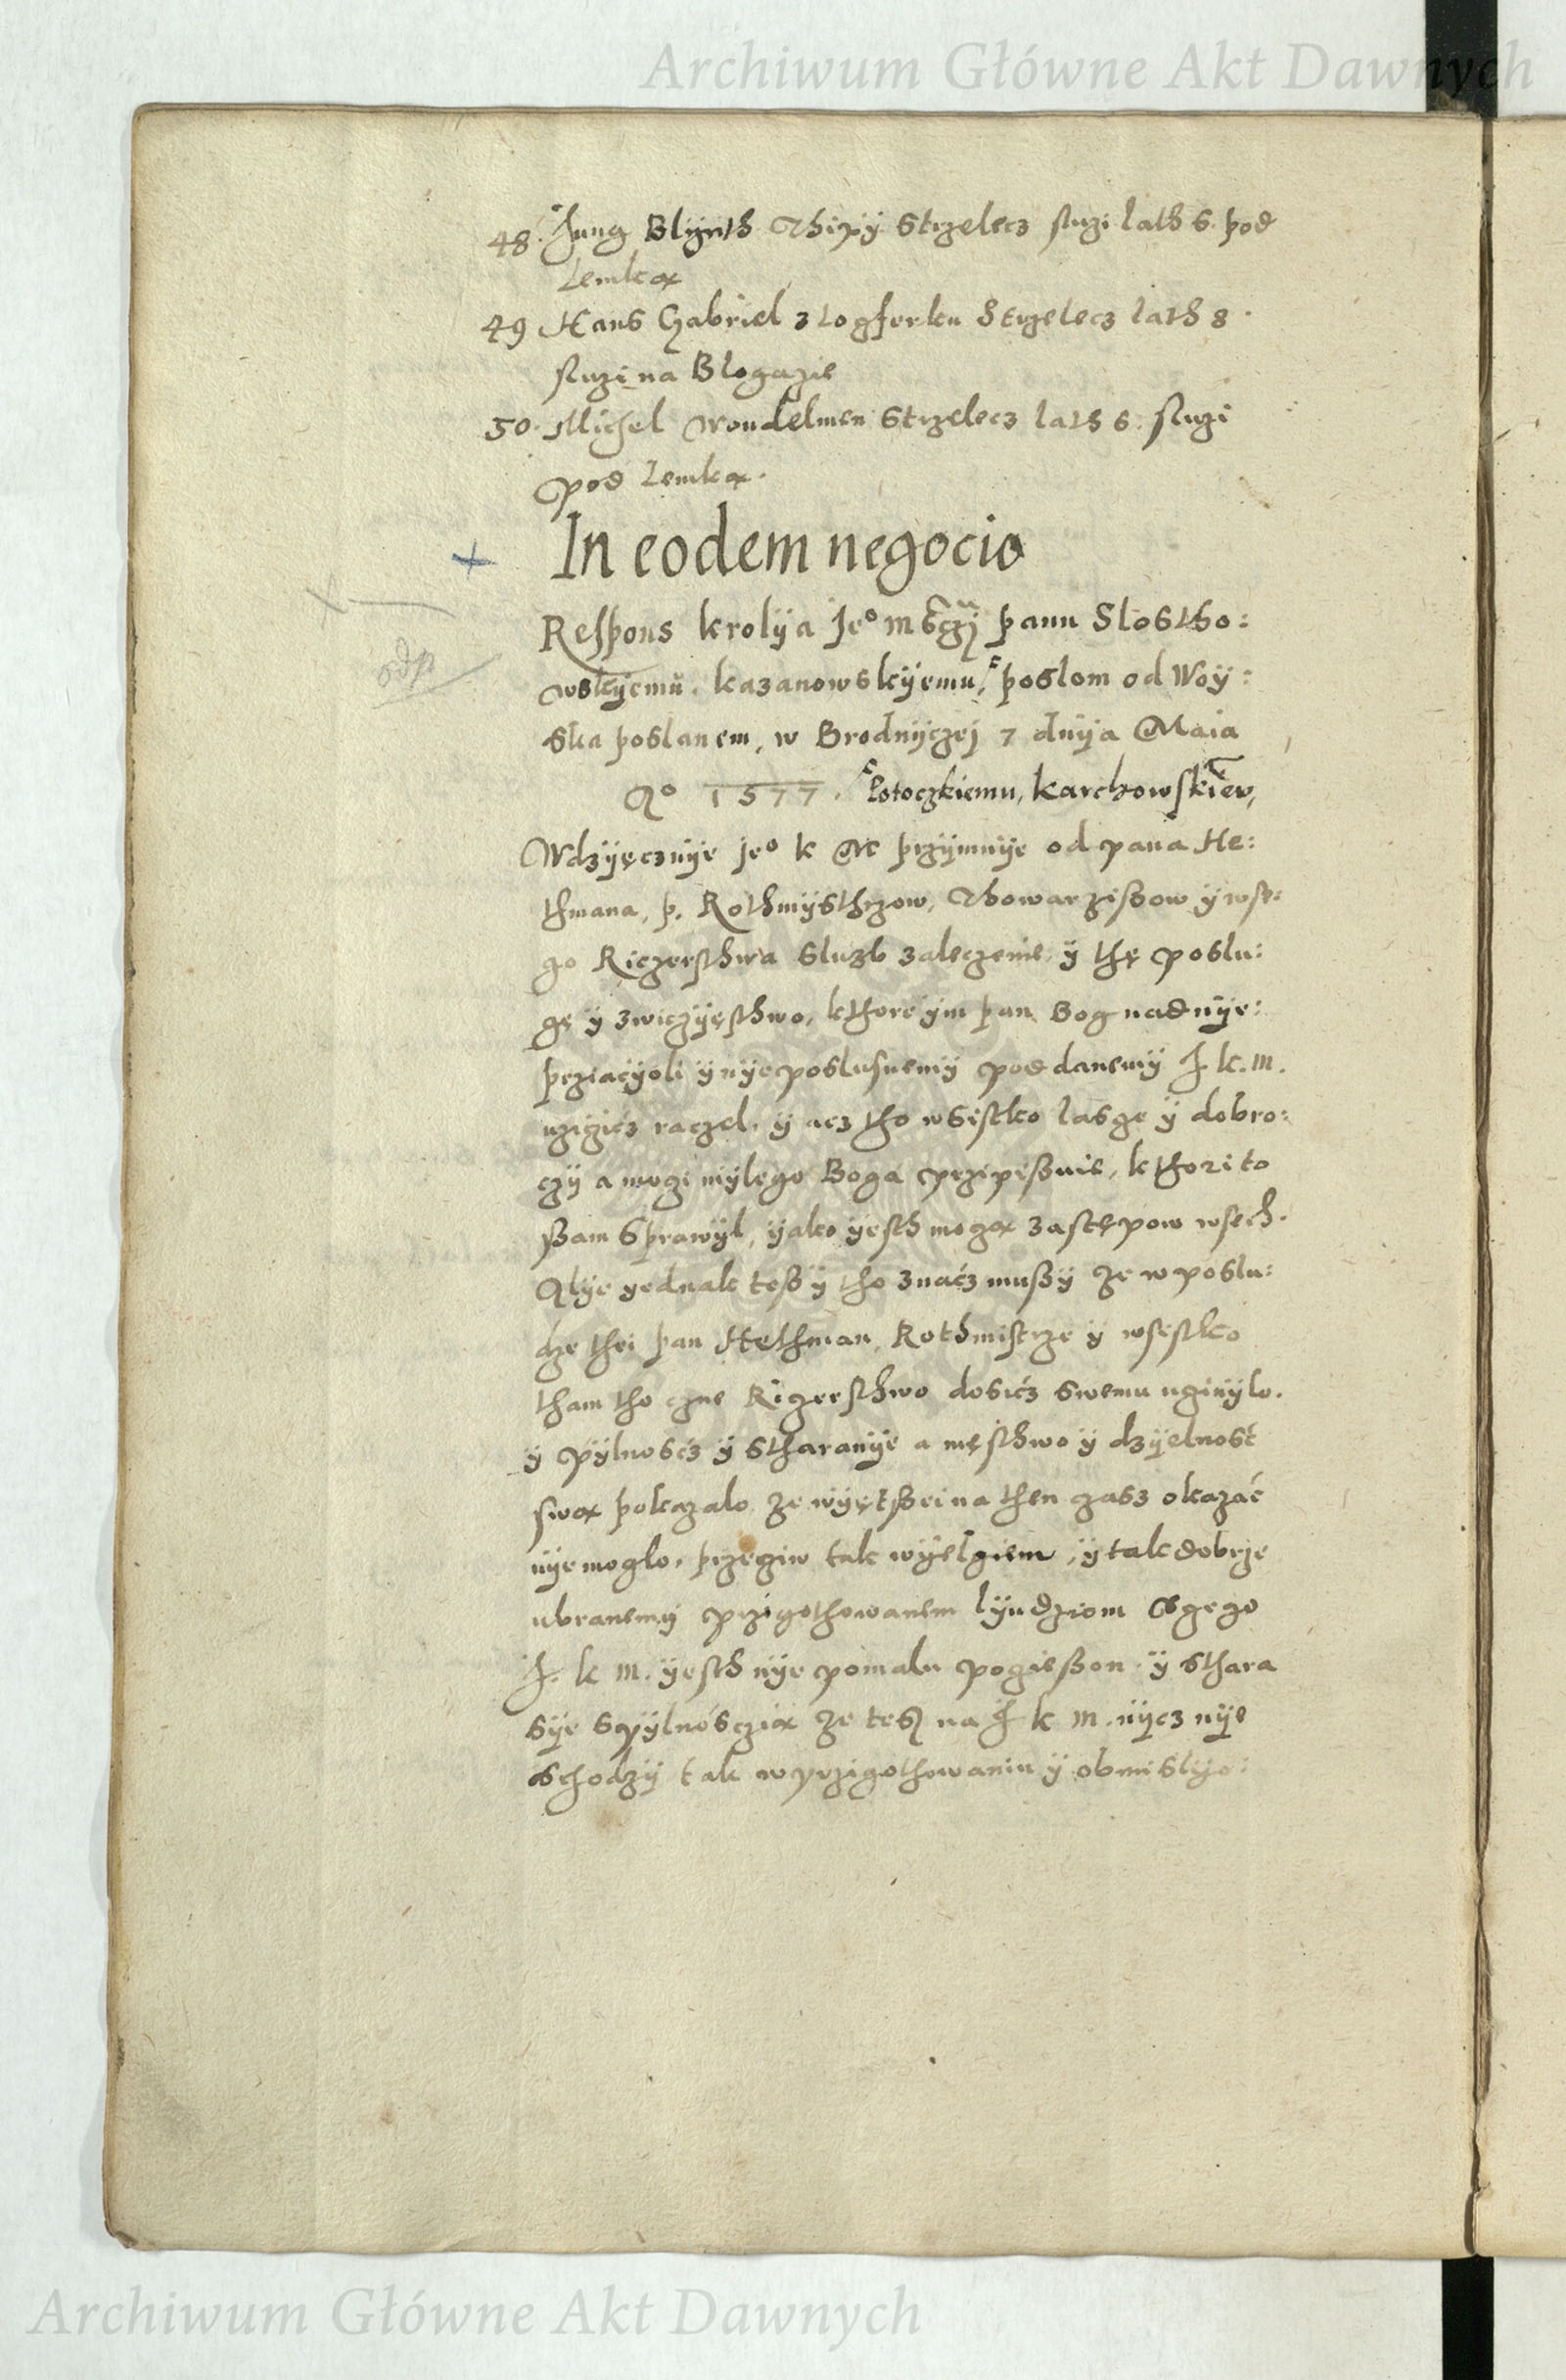 Archiwum Główne Akt Dawnych
48. Jung Blÿnth Thixÿ Strzelecz sluzi lath 6. pod
Lemką
49 Hans Gabriel z Logferku Strzelecz lath 8.
sluzi na Blogazie
50. Michel Wondelmen Strzelecz lath 6. sluzi
pod Lemką.
In eodem negocio
Respons krolÿa Jeº msczi panu Slostho:
wskÿemu, kazanowskÿemu, poslom od Woÿ:
ska poslanem, w Brodnÿczej 7 dnÿa Maia
Aº 1577. Potoczkiemu, Karchowskieu,
odp
Wdzÿęcznÿe jeº k Mc przÿmuÿe od pana He:
thmana, p. Rothmÿsthrzow, Thowarzißow ÿ wse:
go Riczersthwa sluzb zaleczenie, ÿ thę poslu:
gę ÿ zwiczÿęsthwo, kthore ÿm pan Bog nad nÿe:
przÿaczÿoli ÿ nÿeposlusnemÿ poddanemÿ J. k. m.
uziczićz raczel. ÿ acz tho wsistko lasge ÿ dobro:
czÿ a mogi mÿlego Boga przipißuie, kthori to
ßam sprawÿl, ÿako ÿesth mogą zastępow wsech.
Alÿe ÿednak teß ÿ tho znaćz mußÿ ze w poslu:
dze thei pan Hethman, Rothmistrze ÿ wsistko
tham tho czne Riczersthwo dosićz swemu uginÿlo.
ÿ pÿlnosćz ÿ stharanÿe a męsthwo ÿ dzÿelnosć
swą pokazalo ze wÿętßei na then czasz okazać
nÿe moglo, przeziw tak wÿelgiem, ÿ tak dobrze
ubranemÿ przigothowanem lÿudziom czego
J. k m. ÿesth nÿe pomalu pocießon ÿ sthara
sÿe s pÿlnosczią ze tesz na J k m. nÿcz nÿe
schodzÿ tak w przigothowaniu ÿ obmislÿo:
Archiwum Główne Akt Dawnych